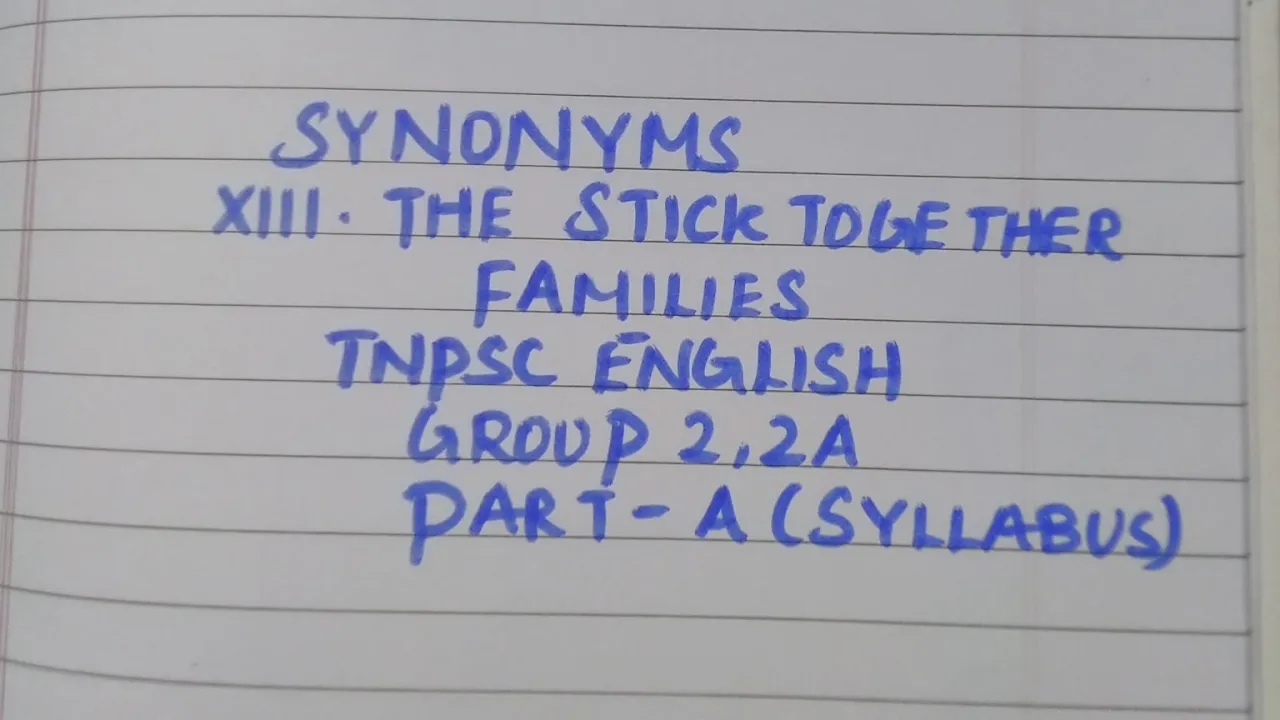 SYNONYMS
XIII. THE STICK TOGETHER
FAMILIES
TNPSC ENGLISH
GROUP 2,2A
PART-A (SYLLABUS)